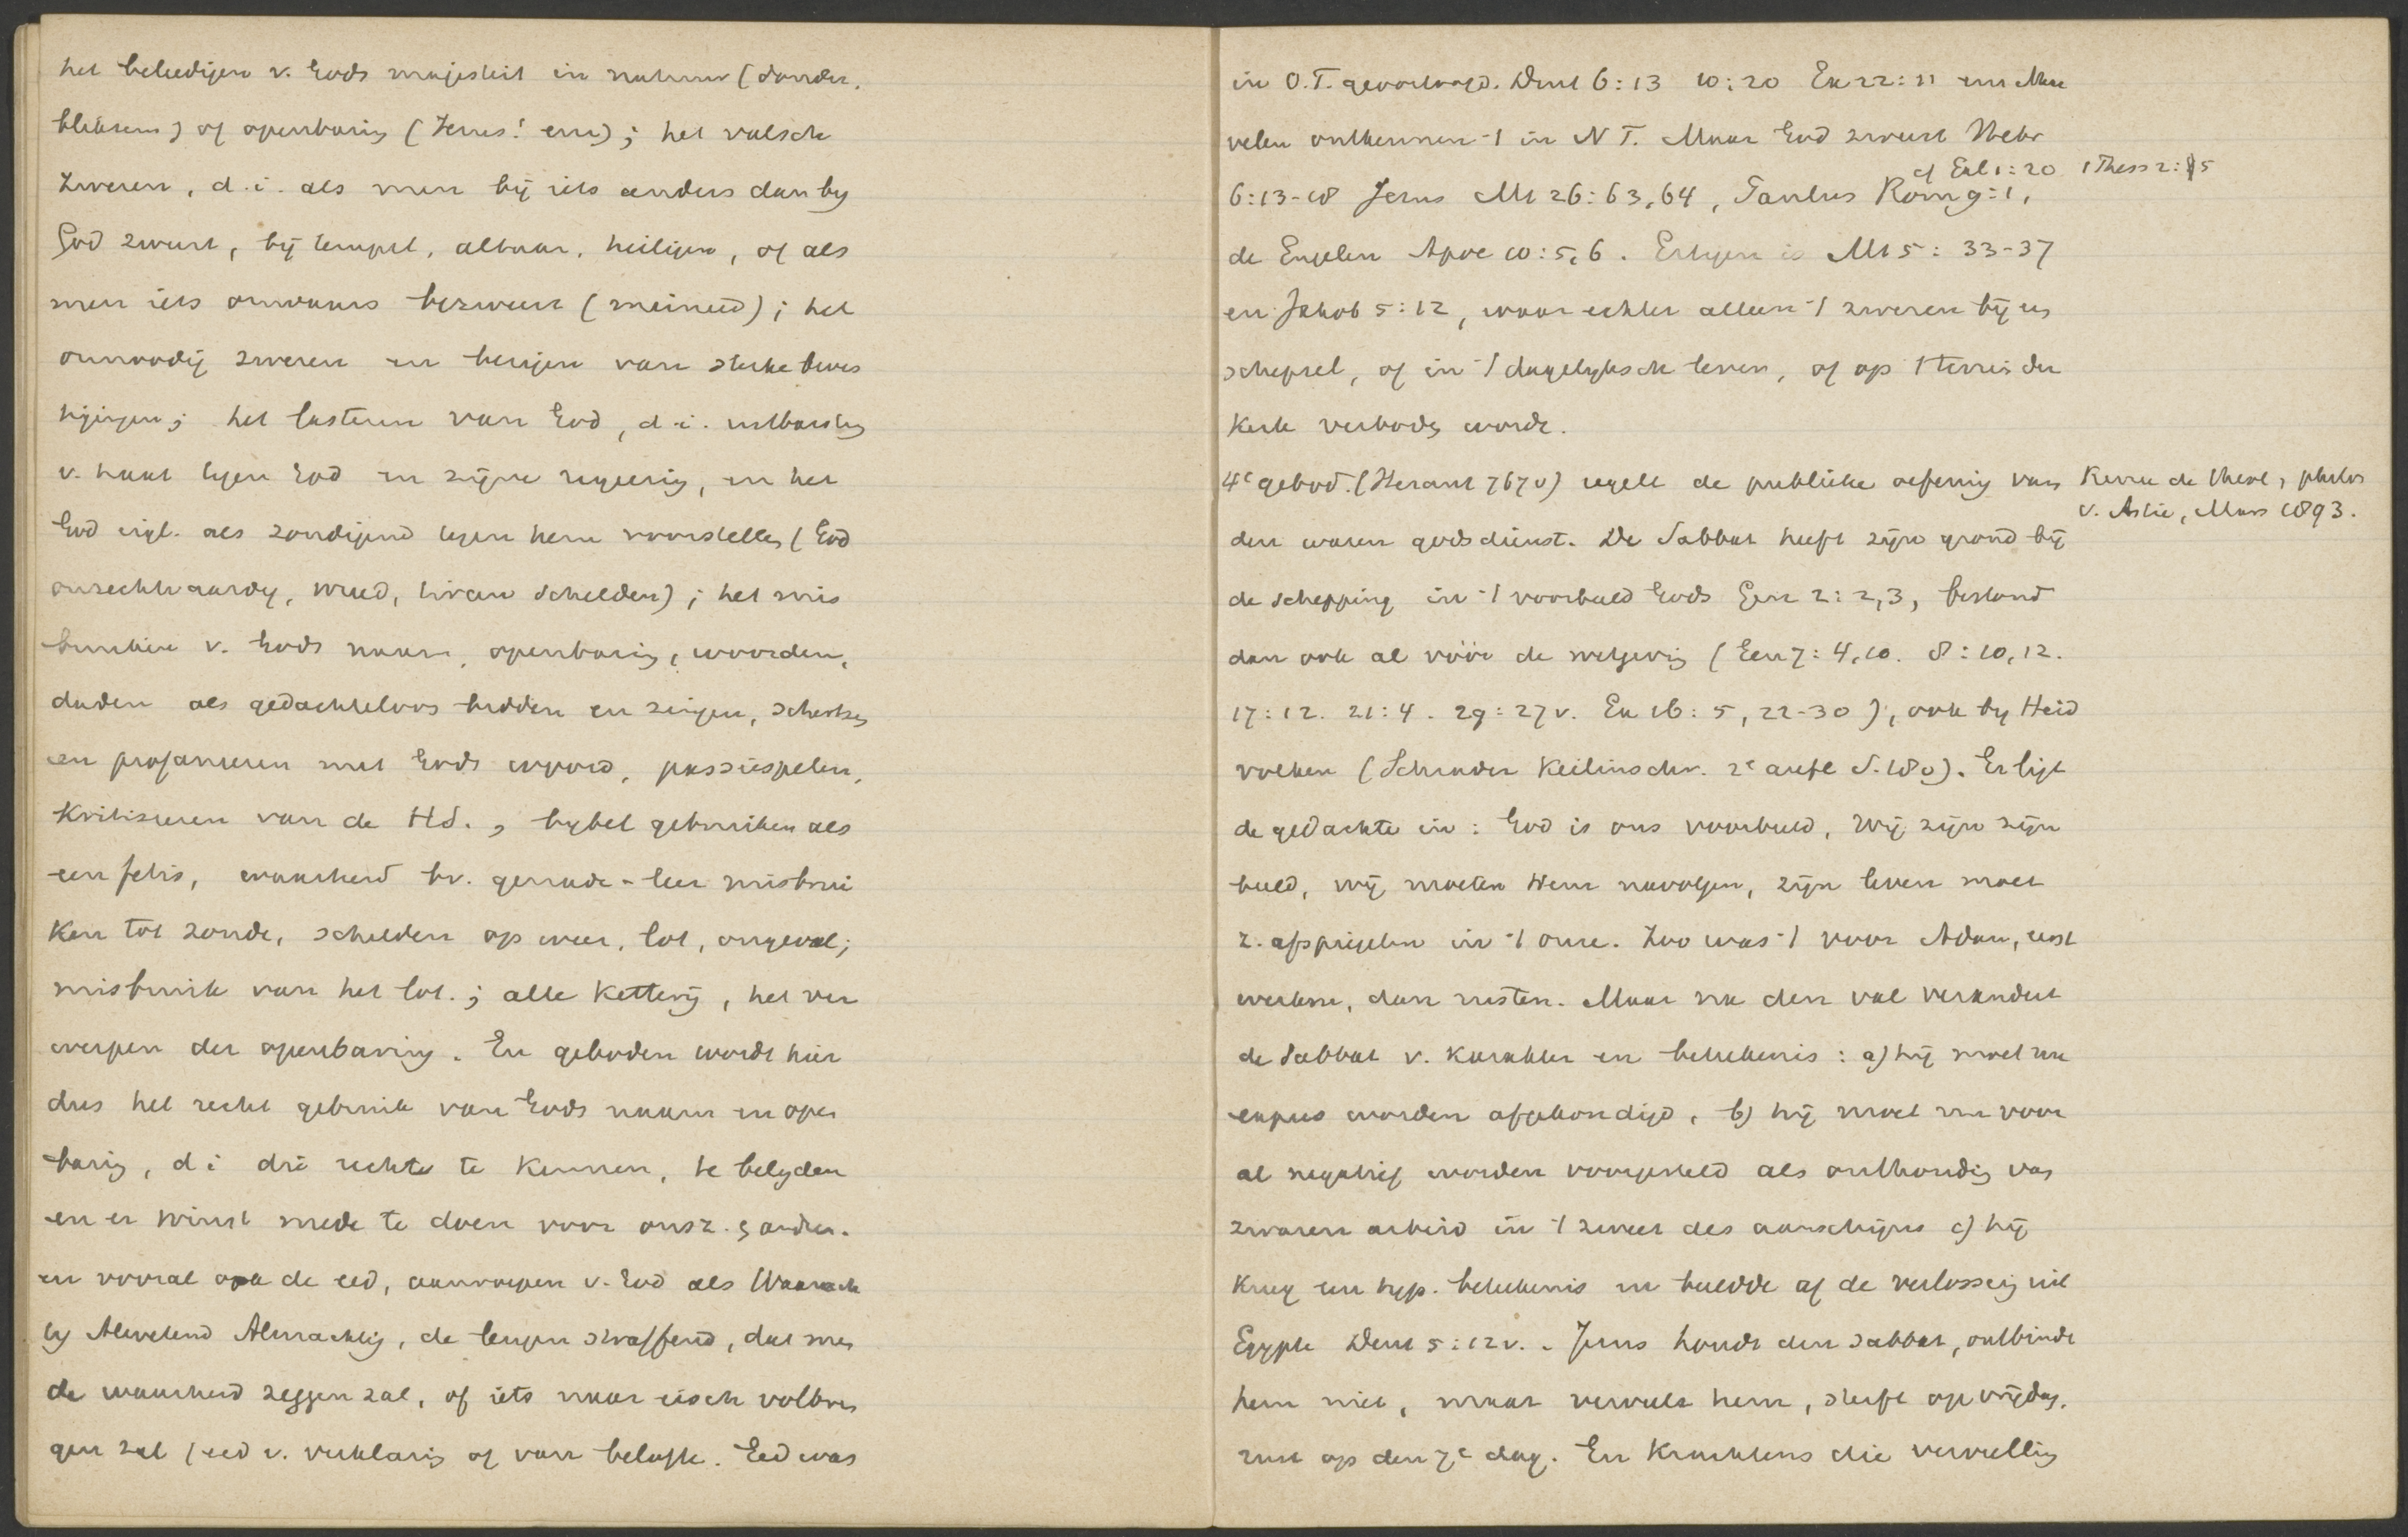 het beleedigen v. Gods majesteit in natuur (donder,
bliksem) of openbaring (Jezus! enz); het valsch
zweren, d.i. als men bij iets anders dan by
God zweert, bij tempel, altaar, heiligen, of als
men iets onwaars bezweert (meineed); het
onnoodig zweren en bezigen van sterke bewe
ringen; het lasteren van God, d.i. uitbarsting
v. haat tegen God en zijne regeering, en het
God vgl. als zondigend tegen hem voorstellen (God
onrechtvaardig, wreed, tiran schelden); het mis
bruiken v. Gods naam, openbaring, woorden,
daden als gedachteloos bidden en zingen, schertsen
en profaneeren met Gods woord, passiespelen,
kritiseeren van de H.S., bybel gebruiken als
een fetis, waarheid bv. genade-leer misbrui
ken tot zonde, schelden op weer, lot, ongeval;
misbruik van het lot.; alle ketterij, het ver
werpen der openbaring. En geboden wordt hier
dus het recht gebruik van Gods naam en open
baring, d i die recht te kennen, te belyden
en er winst mede te doen voor onsz. & ander.
en vooral ook de eed, aanroepen v. God als Waarach
tig Alwetend Almachtig, de leugen straffend, dat men
de waarheid zeggen zal, of iets naar eisch volbren
gen zal (eed v. verklaring of van belofte. Eed was
in O.T. geoorloofd. Deut 6:13 10:20 Ex 22:11
velen ontkennen 't in N T. Maar God zweert Hebr
cf Gal 1:20 1 Thess 2:5
6:13-18 Jezus Mt 26:63,64, Paulus Rom 9:1,
de Engelen Apoc 10:5,6. Ertegen is Mt 5:33-37
en Jakob 5:12, waar echter alleen 't zweren bij een
schepsel, of in 't dagelyksch leven, of op 't terrein der
Kerk verboden wordt.
4e gebod. (Heraut 767v) regelt de publieke oefening van
Revue de theol, philos
v. Astié, Mars 1893.
den waren godsdienst. De Sabbat heeft zijn grond bij
de schepping in 't voorbeeld Gods Gen 2:2,3, bestond
dan ook al vóór de wetgeving (Gen 7:4,10. 8:10,12.
17:12. 21:4. 29:27v. Ex 16:5, 22-30), ook by Heid
volken (Schrader Keilinschr. 2e aufl S. 18v). Er ligt
de gedachte in: God is ons voorbeeld, wij zijn zijn
beeld, wij moeten Hem navolgen, zijn leven moet
z. afspiegelen in 't onze. Zoo was 't voor Adam, eerst
werken, dan rusten. Maar na den val verandert
de Sabbat v. karakter en beteekenis: a) hij moet nu
expres worden afgekondigd, b) hij moet nu voor
al negatief worden voorgesteld als onthouding van
zwaren arbeid in 't zweet des aanschijns c) hij
kreeg een typ. beteekenis en beeldde af de verlossing uit
Egypte Deut 5:12v. Jezus houdt den sabbat, ontbindt
hem niet, maar vervult hem, sterft op vrijdag,
rust op den 7e dag. En krachtens die vervulling